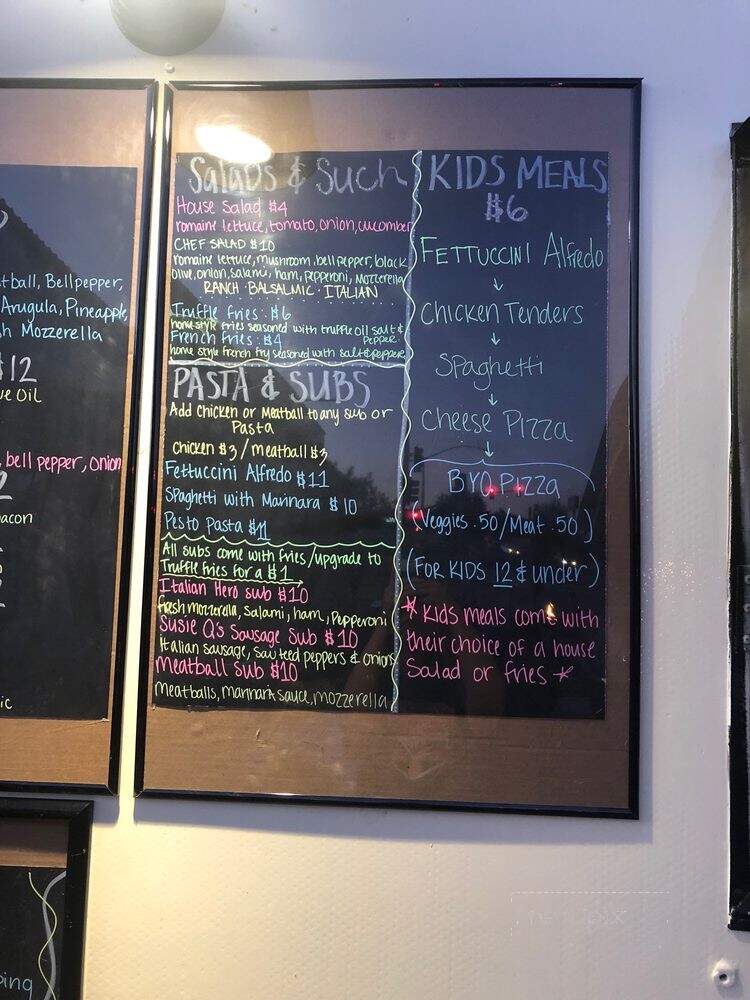 tball, Bellpepper,
Arugula, Pineapple,
h Mozzerella
$12
ve Oil
bell pepper, onion
2
acon
ic
ping
Salads & Such
House Salad $4
romaine lettuce, tomato, onion, cucumber
CHEF SALAD $10
romaine lettuce, mushroom, bell pepper, black
olive, onion, salami, ham, pepperoni, mozzerella
RANCH · BALSALMIC · ITALIAN
Truffle fries · $6
home style fries seasoned with truffle oil salt &
pepper.
French fries · $4
home style french fry seasoned with salt & pepper
PASTA & SUBS
Add Chicken or Meatball to any sub or
Pasta
Chicken $3 / meatball $3
Fettuccini Alfredo $11
Spaghetti with Marinara $10
Pesto Pasta $11
All subs come with fries / upgrade to
Truffle fries for a $1
Italian Hero sub $10
fresh mozzerella, Salami, ham, Pepperoni
Susie Q's Sausage Sub $10
Italian sausage, sauteed peppers & onions
Meatball sub $10
meatballs, marinara sauce, mozzerella
KIDS MEALS
$6
FETTUCCINI Alfredo
↓
Chicken Tenders
↓
Spaghetti
↓
Cheese Pizza
↓
BYO Pizza
(Veggies .50/Meat .50)
(FOR KIDS 12 & under)
* Kids meals come with
their choice of a house
Salad or fries *